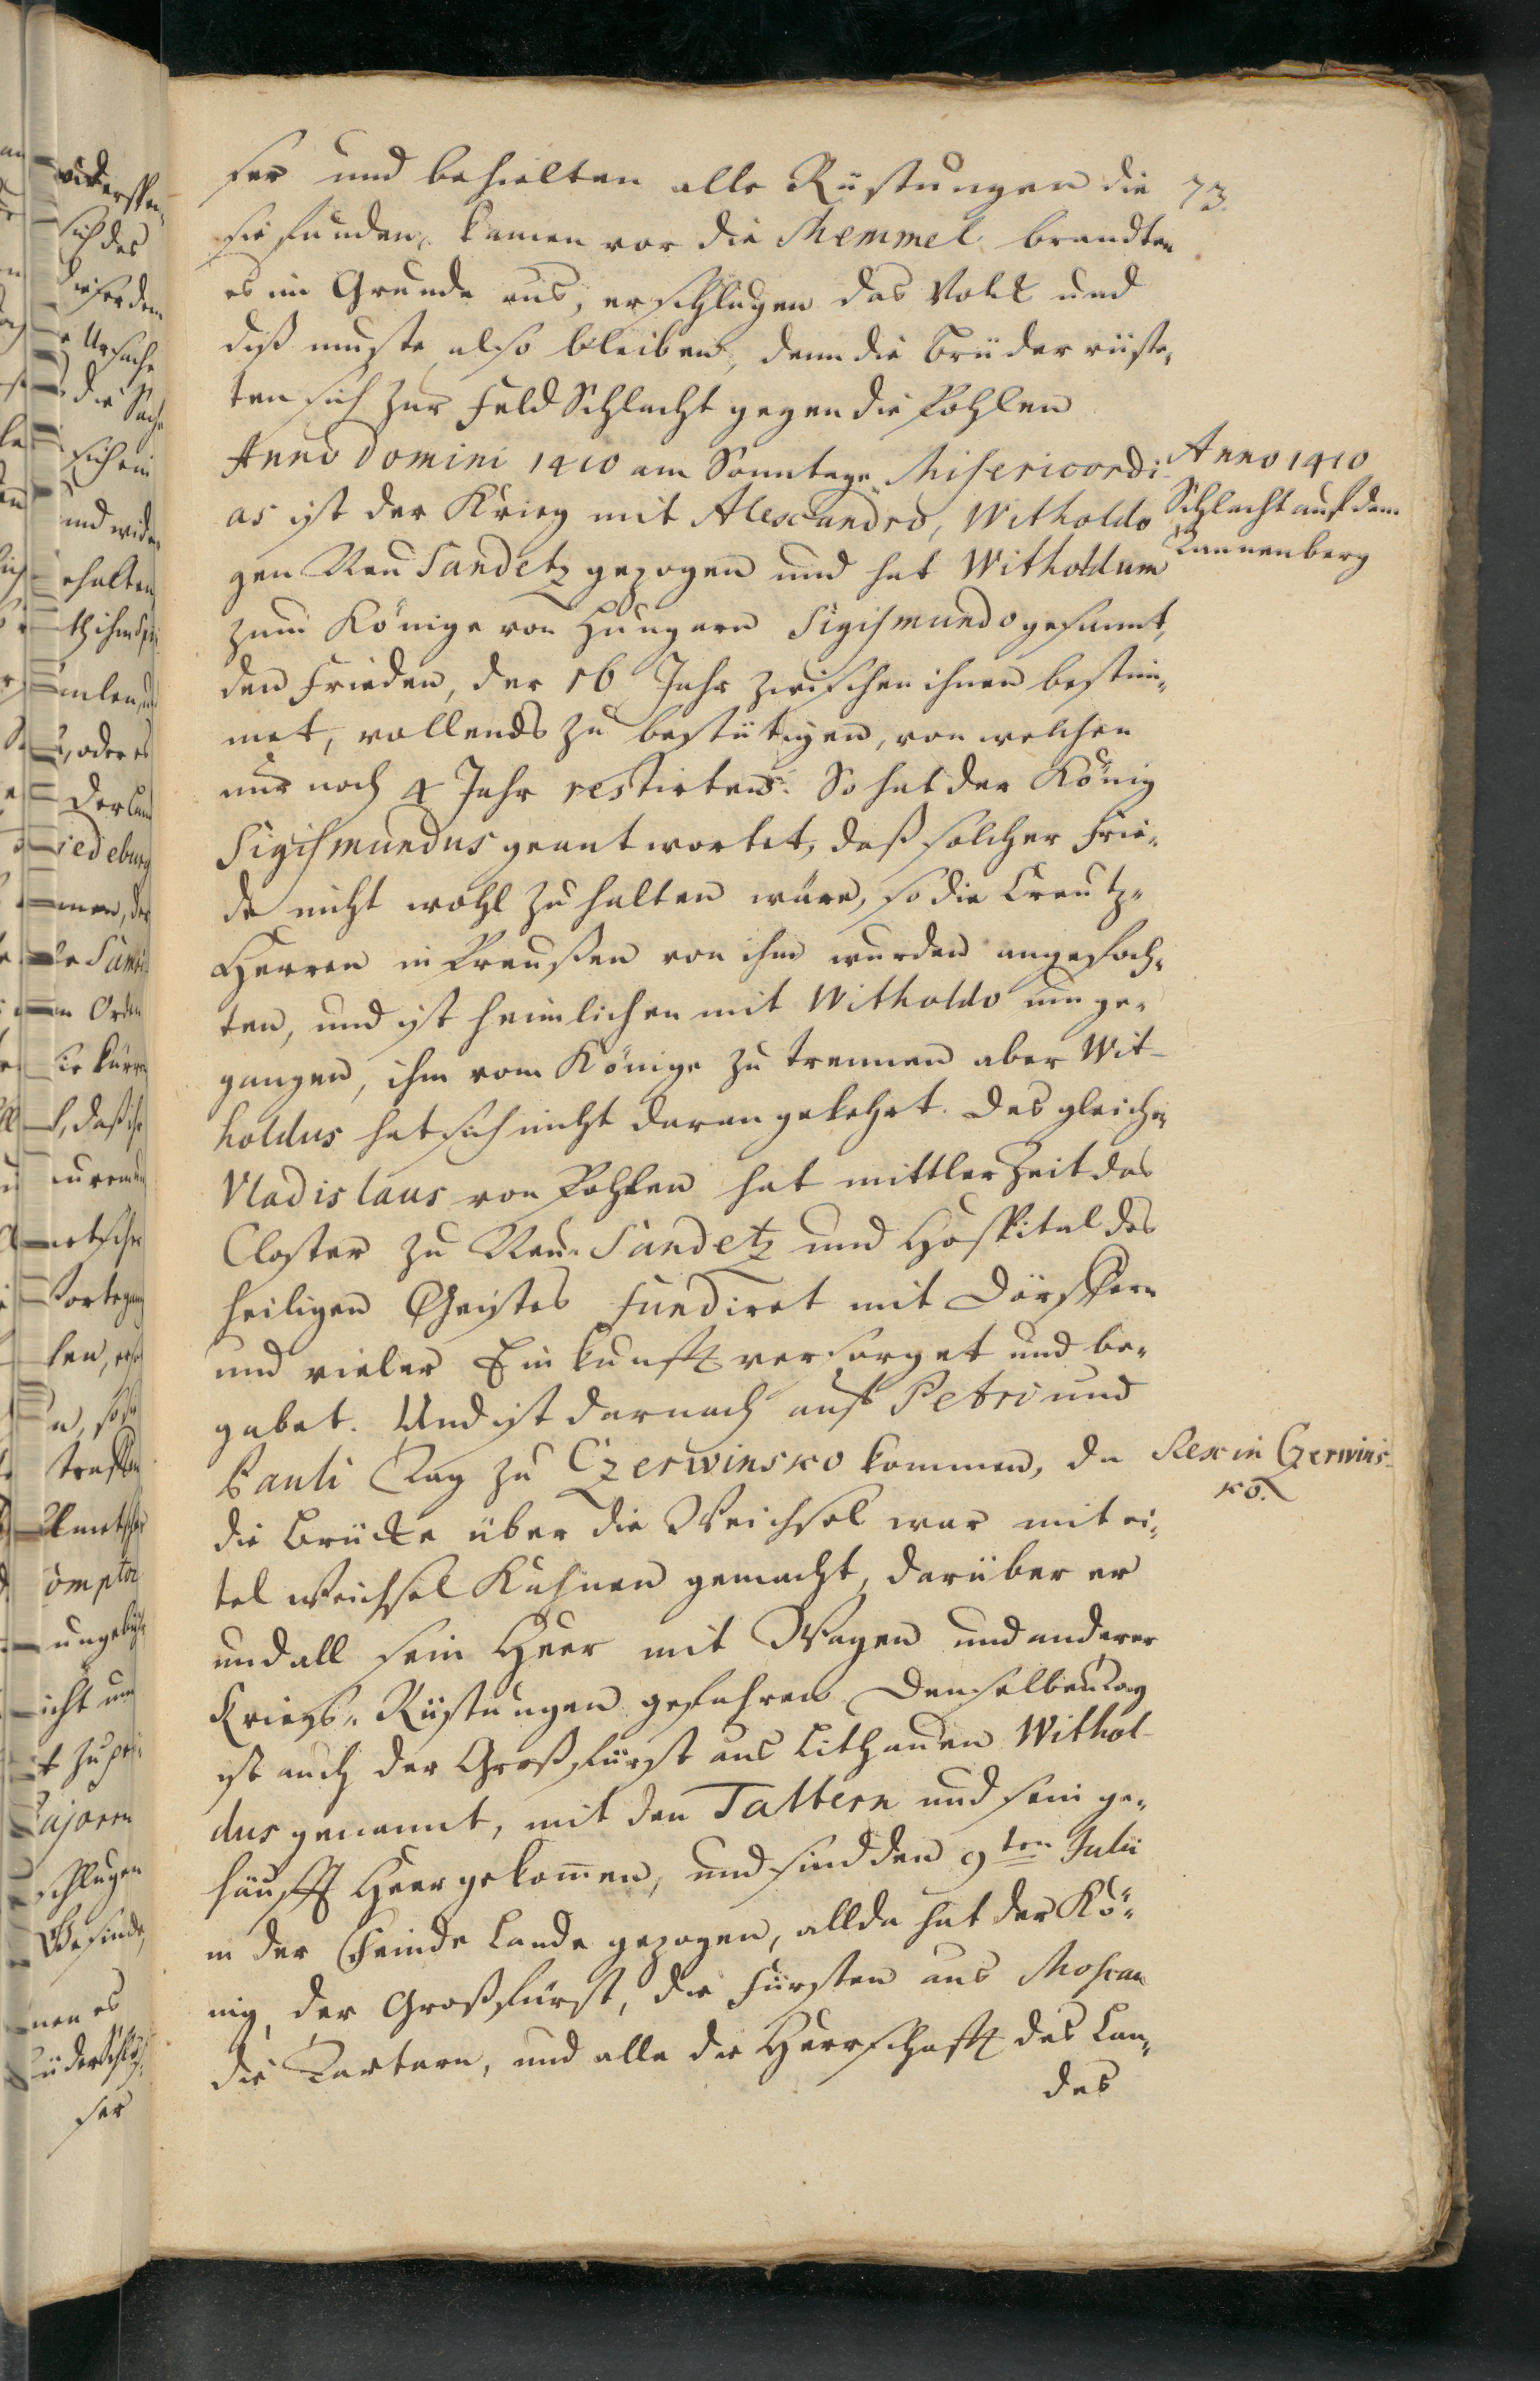 ser und behielten alle Rüstungen die
73.
sie funden, kamen vor die Memmel brandten
es im Grunde aus, erschlugen das Volk und
diß muste also bleiben, denn die Brüder rüste„
ten sich zur Feld Schlacht gegen die Pohlen
Anno Domini 1410 am Sonntage Misericordi-
as ist der Krieg mit Alexandro, Witholdo
gen Neu Sandetz gezogen und hat Witholdum
zum Könige von Hungarn Sigismundo gesannt,
den Frieden, der 16 Jahr zwischen ihnen bestim„
met, vollends zu bestätigen, von welchen
nur noch 4 Jahr restirten. So hat der König
Sigismundus geantwortet, daß solcher Frie„
de nicht wohl zu halten wäre, so die Creutz„
Herren in Preußen von ihm wurden angefoch„
ten, und ist heimlichen mit Witholdo umge„
gangen, ihm vom Könige zu trennen aber Wit-
holdus hat sich nicht daran gekehrt. Des gleichen
Vladislaus von Pohlen hat mittler Zeit das
Closter zu Neu Sandetz und Hospital des
heiligen Geistes fundiret mit Dörffern
und vieler Einkunfft versorget und be„
gabet. Und ist darnach auf Petri und
Pauli Tag zu Czerwinsko kommen, da
die Brücke über die Weichsel war mit ei„
tel Weichsel Kahnen gemacht, darüber er
und all sein Heer mit Wagen und anderer
Kriegs„ Rüstungen gefahren Denselben Tag
ist auch der Großfürst aus Lithauen Withol-
dus genannt, mit den Tattern und sein ge„
häufft Heer gekommen, und sind den 9ten Julii
in der Feinde Lande gezogen, allda hat der Kö„
nig, der Großfürst, die Fürsten aus Moscau
die Tartarn, und alle die Herrschafft des Lan„
des
Anno 1410
Schlacht auf dem
Tannenberg
Rex in Czerwins-
ko.